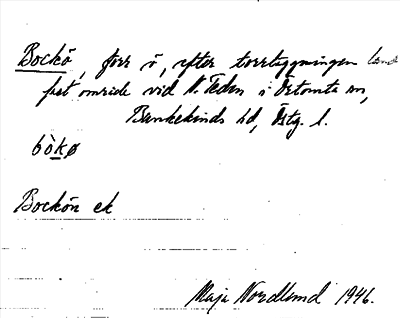 Bockö, förr ö, efter torrläggningen land
fast område vid N. Teden i Örtomta sn,
Bankekinds hd, Östg. l.
bòkø
Bockön ek
Maja Nordlund 1946.